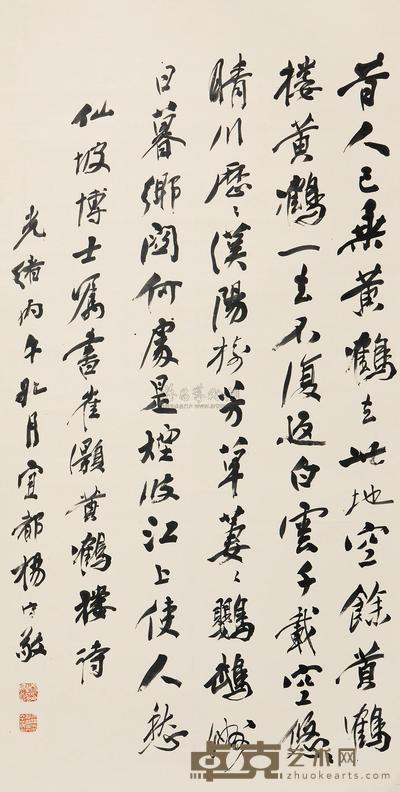 昔人已乘黄鶴去此地空餘黄鶴
楼黄鶴一去不復返白雲千載空悠〻
晴川歷〻漢陽樹芳草萋〻鸚鵡洲
日暮鄉關何處是煙波江上使人愁
仙坡博士属書崔灝黄鶴楼詩
光緒丙午月宜都楊守敬
卓克艺术网
zhuokearts.com